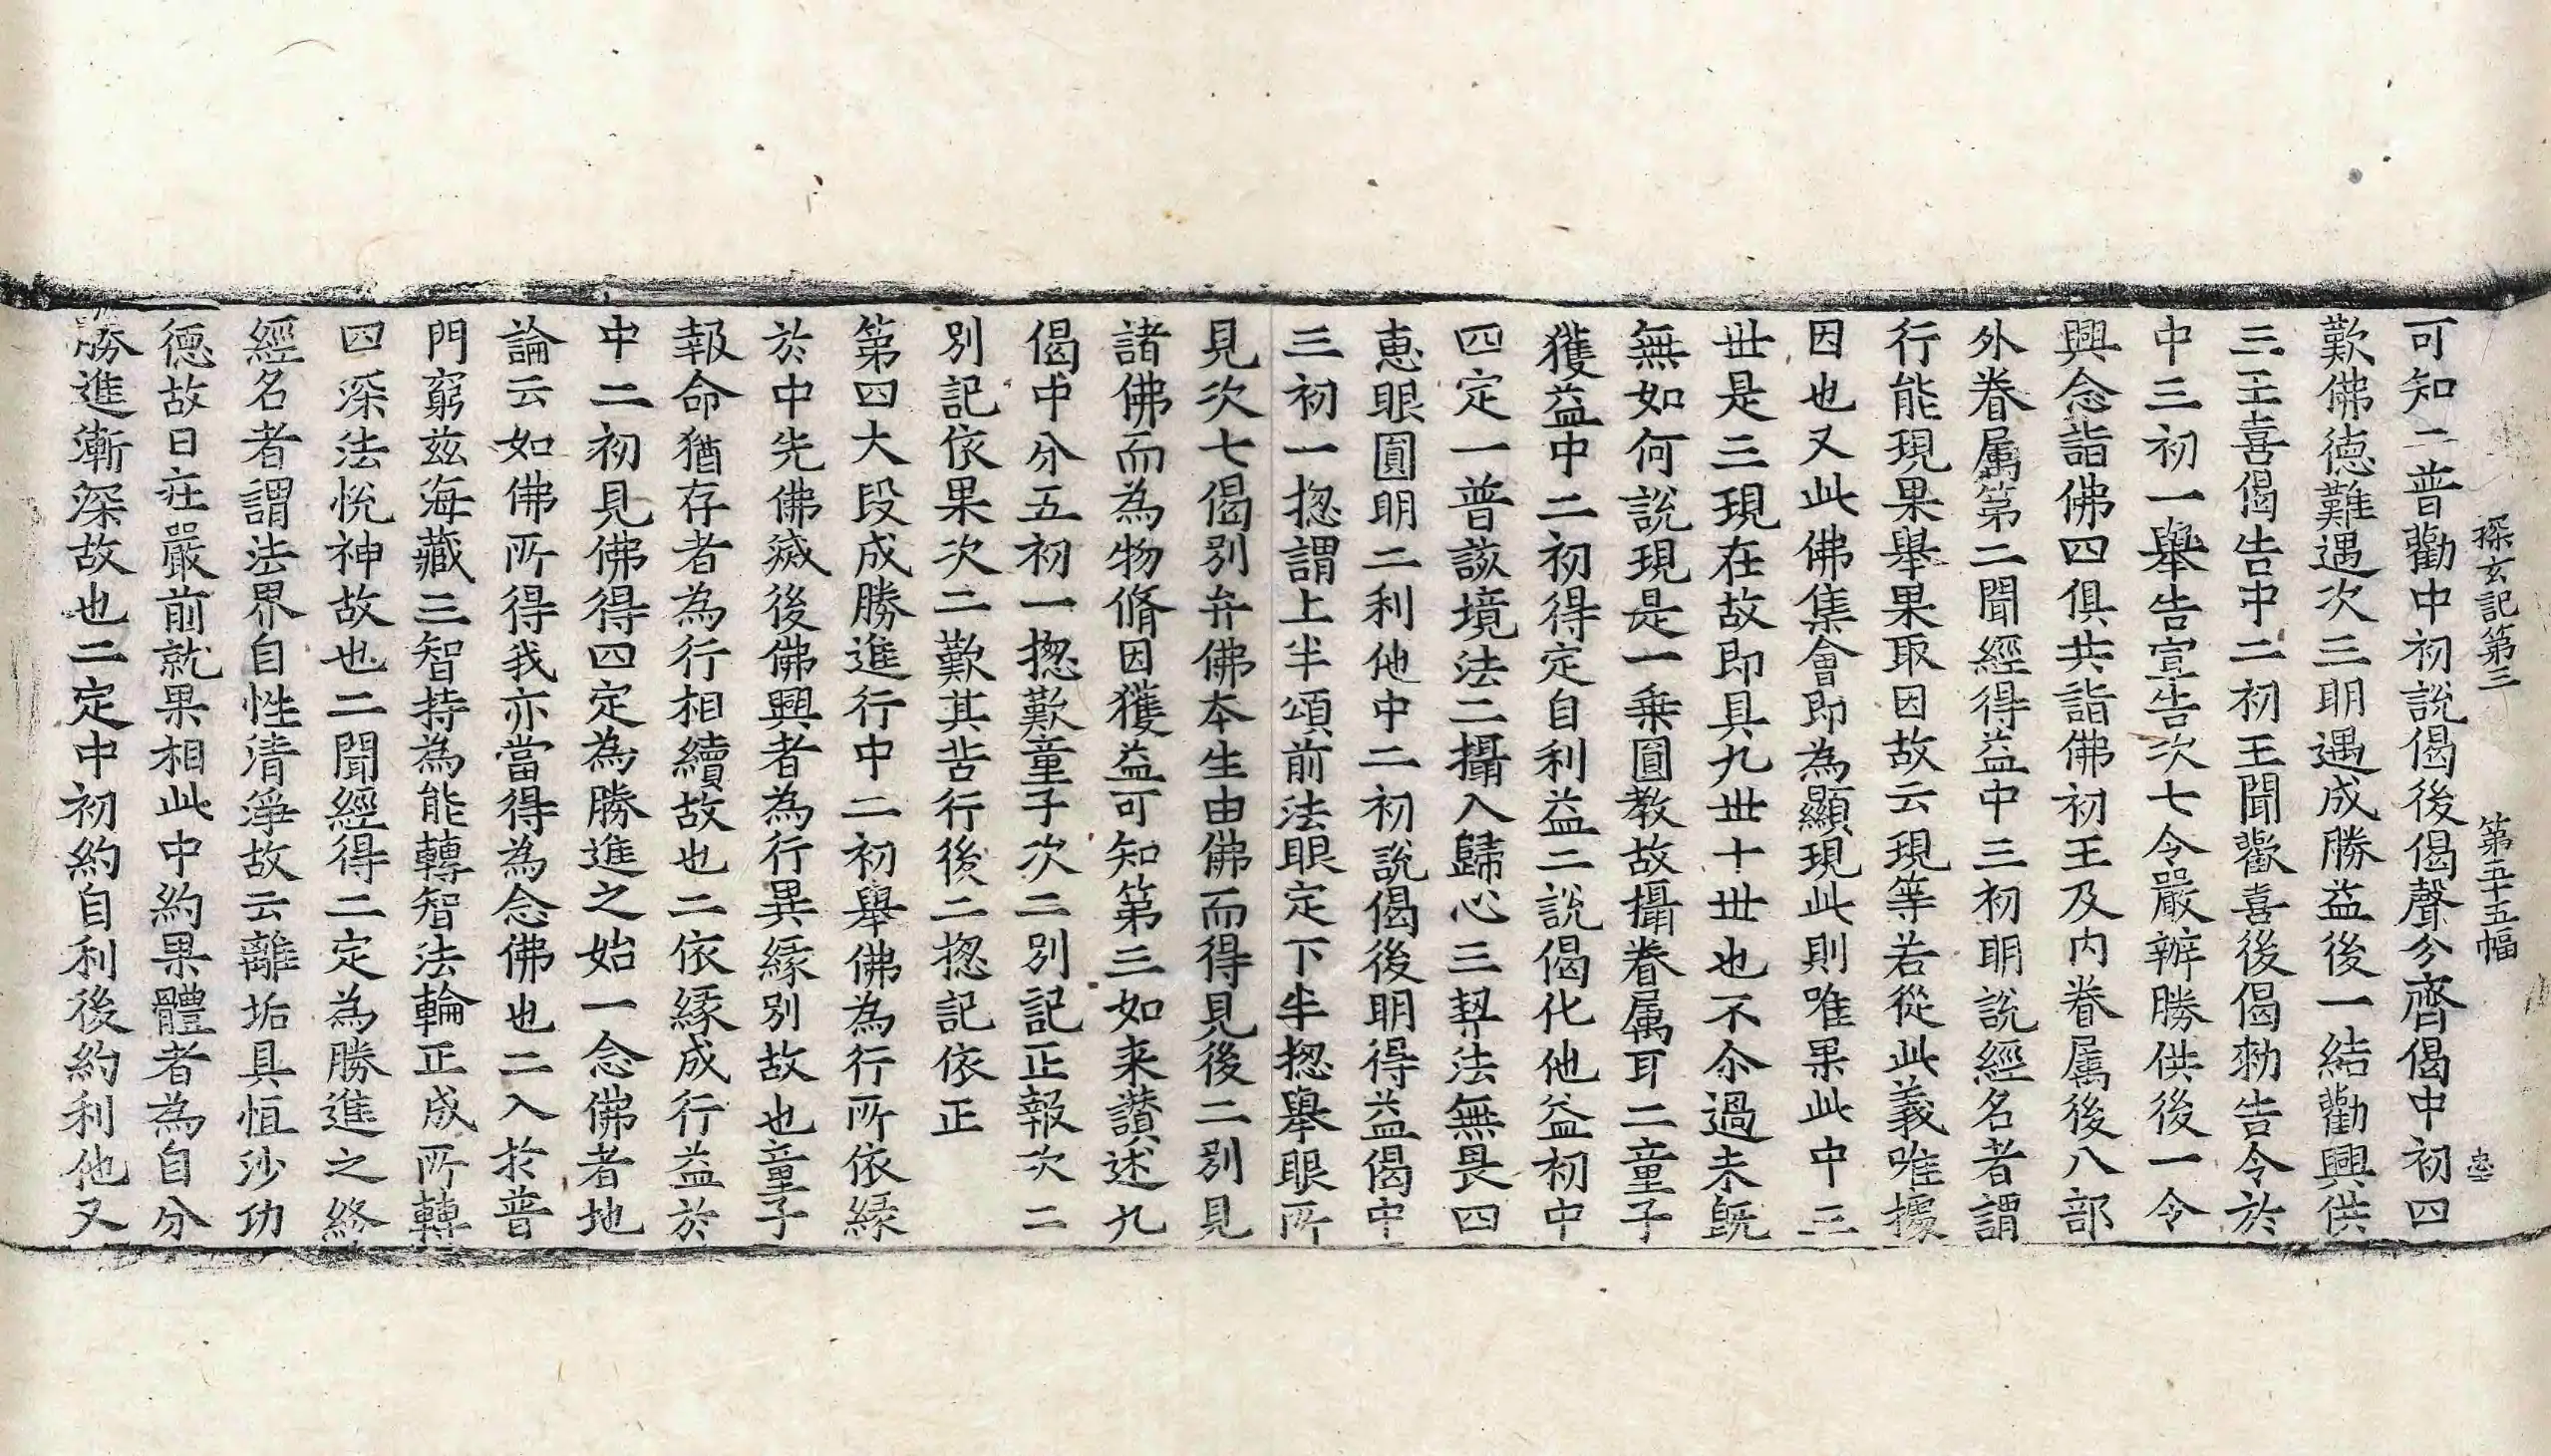 探玄記第三 第五十五幅 忠
可知二普勸中初說偈後偈聲分齊偈中初四
歎佛德難遇次三明遇成勝益後一結勸興供
三王喜偈告中二初王聞歡喜後偈勑告令於
中三初一舉告宣告次七令嚴辦勝供後一令
興念詣佛四俱共詣佛初王及內眷属後八部
外眷属第二聞經得益中三初明說經名者謂
行能現果舉果取因故云現等若從此義唯據
因也又此佛集會即為顯現此則唯果此中三
丗是三現在故即具九丗十丗也不尒過未旣
無如何說現是一乗圓教故攝眷属耳二童子
獲益中二初得定自利益二說偈化他益初中
四定一普該境法二攝入歸心三契法無畏四
恵眼圓明二利他中二初說偈後明得益偈中
三初一揔謂上半頌前法眼定下半揔舉眼所
見次七偈別弁佛本生由佛而得見後二別見
諸佛而為物脩因獲益可知第三如来讃述九
偈中分五初一揔歎童子次二別記正報次二
別記依果次二歎其苦行後二揔記依正
第四大段成勝進行中二初舉佛為行所依緣
於中先佛滅後佛興者為行異緣別故也童子
報命猶存者為行相續故也二依緣成行益於
中二初見佛得四定為勝進之始一念佛者地
論云如佛所得我亦當得為念佛也二入於普
門窮兹海藏三智持為能轉智法輪正成所轉
四深法悅神故也二聞經得二定為勝進之終
經名者謂法界自性清淨故云離垢具恒沙功
德故曰疘嚴前就果相此中約果體者為自分
勝進漸深故也二定中初約自利後約利他又